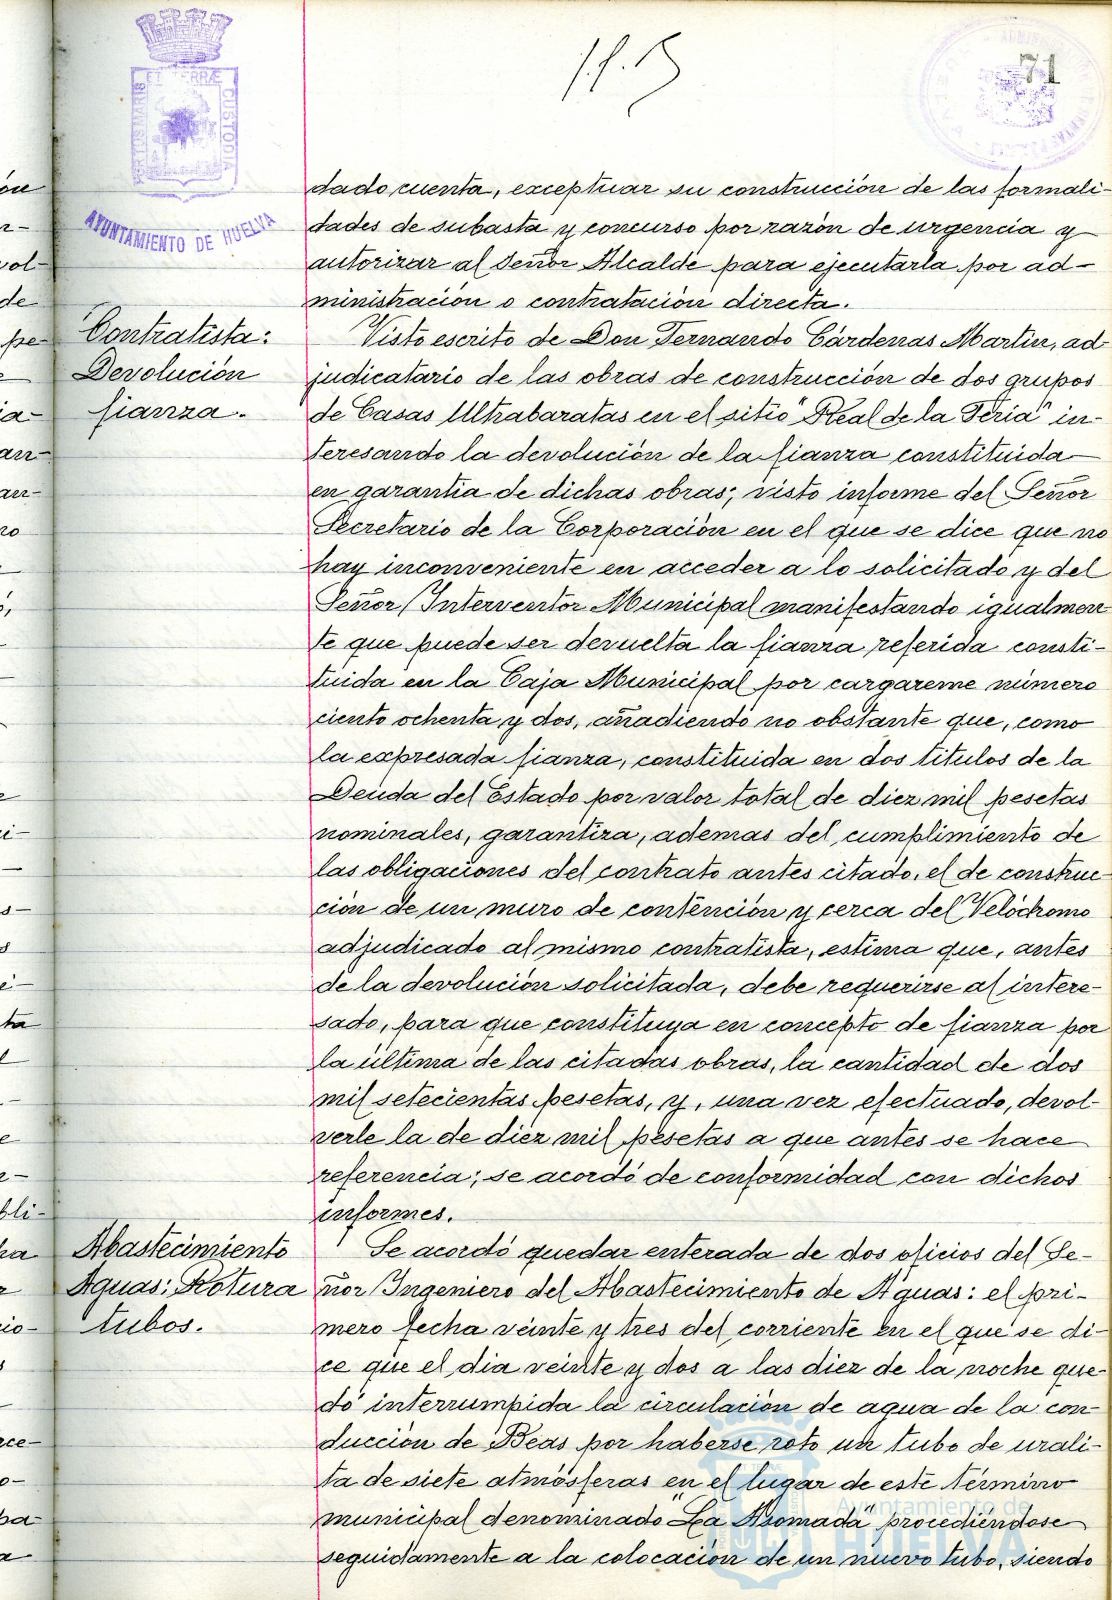 71
PORTUS MARIS ET TERRÆ CUSTODIA
AYUNTAMIENTO DE HUELVA
dado cuenta, exceptuar su construcción de las formali-
dades de subasta y concurso por razón de urgencia y
autorizar al Señor Alcalde para ejecutarla por ad-
ministración o contratación directa.
Contratista:
Devolución
fianza.
Visto escrito de Don Fernando Cárdenas Martin, ad-
judicatario de las obras de construcción de dos grupos
de Casas Ultrabaratas en el sitio "Real de la Feria" in-
teresando la devolución de la fianza constituida
en garantia de dichas obras; visto informe del Señor
Secretario de la Corporación en el que se dice que no
hay inconveniente en acceder a lo solicitado y del
Señor Interventor Municipal manifestando igualmen-
te que puede ser devuelta la fianza referida consti-
tuida en la Caja Municipal por cargareme número
ciento ochenta y dos, añadiendo no obstante que, como
la expresada fianza, constituida en dos titulos de la
Deuda del Estado por valor total de diez mil pesetas
nominales, garantiza, ademas del cumplimiento de
las obligaciones del contrato antes citado, el de construc-
ción de un muro de contención y cerca del Velódromo
adjudicado al mismo contratista, estima que, antes
de la devolución solicitada, debe requerirse al intere-
sado, para que constituya en concepto de fianza por
la última de las citadas obras, la cantidad de dos
mil setecientas pesetas, y, una vez efectuado, devol-
verle la de diez mil pesetas a que antes se hace
referencia; se acordó de conformidad con dichos
informes.
Abastecimiento
Aguas: Rotura
tubos.
Se acordó quedar enterada de dos oficios del Se-
ñor Ingeniero del Abastecimiento de Aguas: el pri-
mero fecha veinte y tres del corriente en el que se di-
ce que el dia veinte y dos a las diez de la noche que-
dó interrumpida la circulación de agua de la con-
ducción de Beas por haberse roto un tubo de urali-
ta de siete atmósferas en el lugar de este término
municipal denominado "La Asomada" procediéndose
seguidamente a la colocación de un nuevo tubo, siendo
Ayuntamiento de
HUELVA